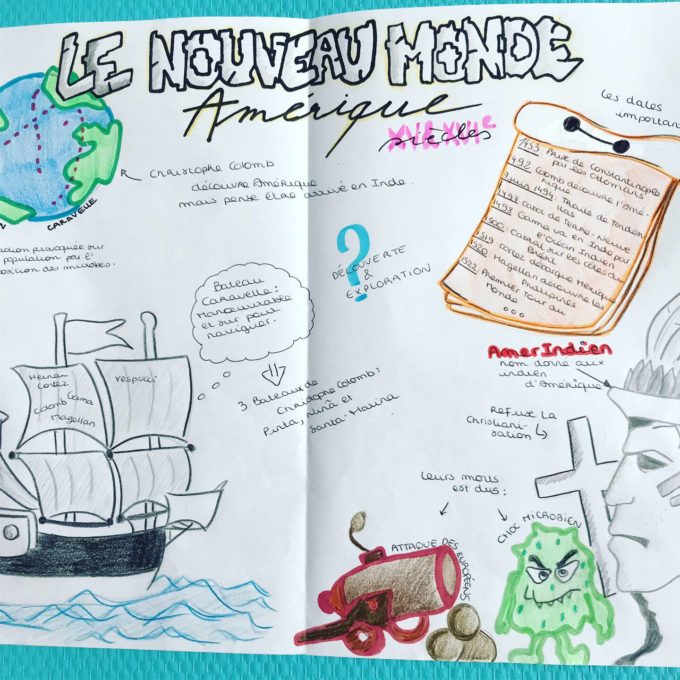 LE NOUVEAU MONDE
Amérique
siècles
CARAVELLE
Christophe Colomb
découvre Amérique
mais pense être arrivé en Inde.
provoquée sur
population par l'
des microbes.
Les dates
important
1453: Prise de Constantinople
par les Ottomans
1492: Colomb découvre l'Amé-
rique
7 juin 1494: Traité de Tordesil
las
1497 Cabot de Terre-Neuve
1498 Gama va en Inde par
l'Océan Indien
1500: Cabral sur les côtes du
Brésil
1519 Cortez débarque Mexique
1520 Magellan découvre les
Philippines
1522 Premier Tour du
Monde
...
?
DÉCOUVERTE
&
EXPLORATION
Bateau
Caravelle:
Manoeuvrable
et sur pour
naviguer.
3 Bateaux de
Christophe Colomb:
Pinta, Ninà et
Santa-Marina
Cortez
Colomb Gama
Magellan
Vespuci
AmerIndien
nom donné aux
indien
d'Amérique
Refuse la
Christiani-
sation
Leurs morts
est dus:
ATTAQUE DES EUROPÉENS
CHOC MICROBIEN